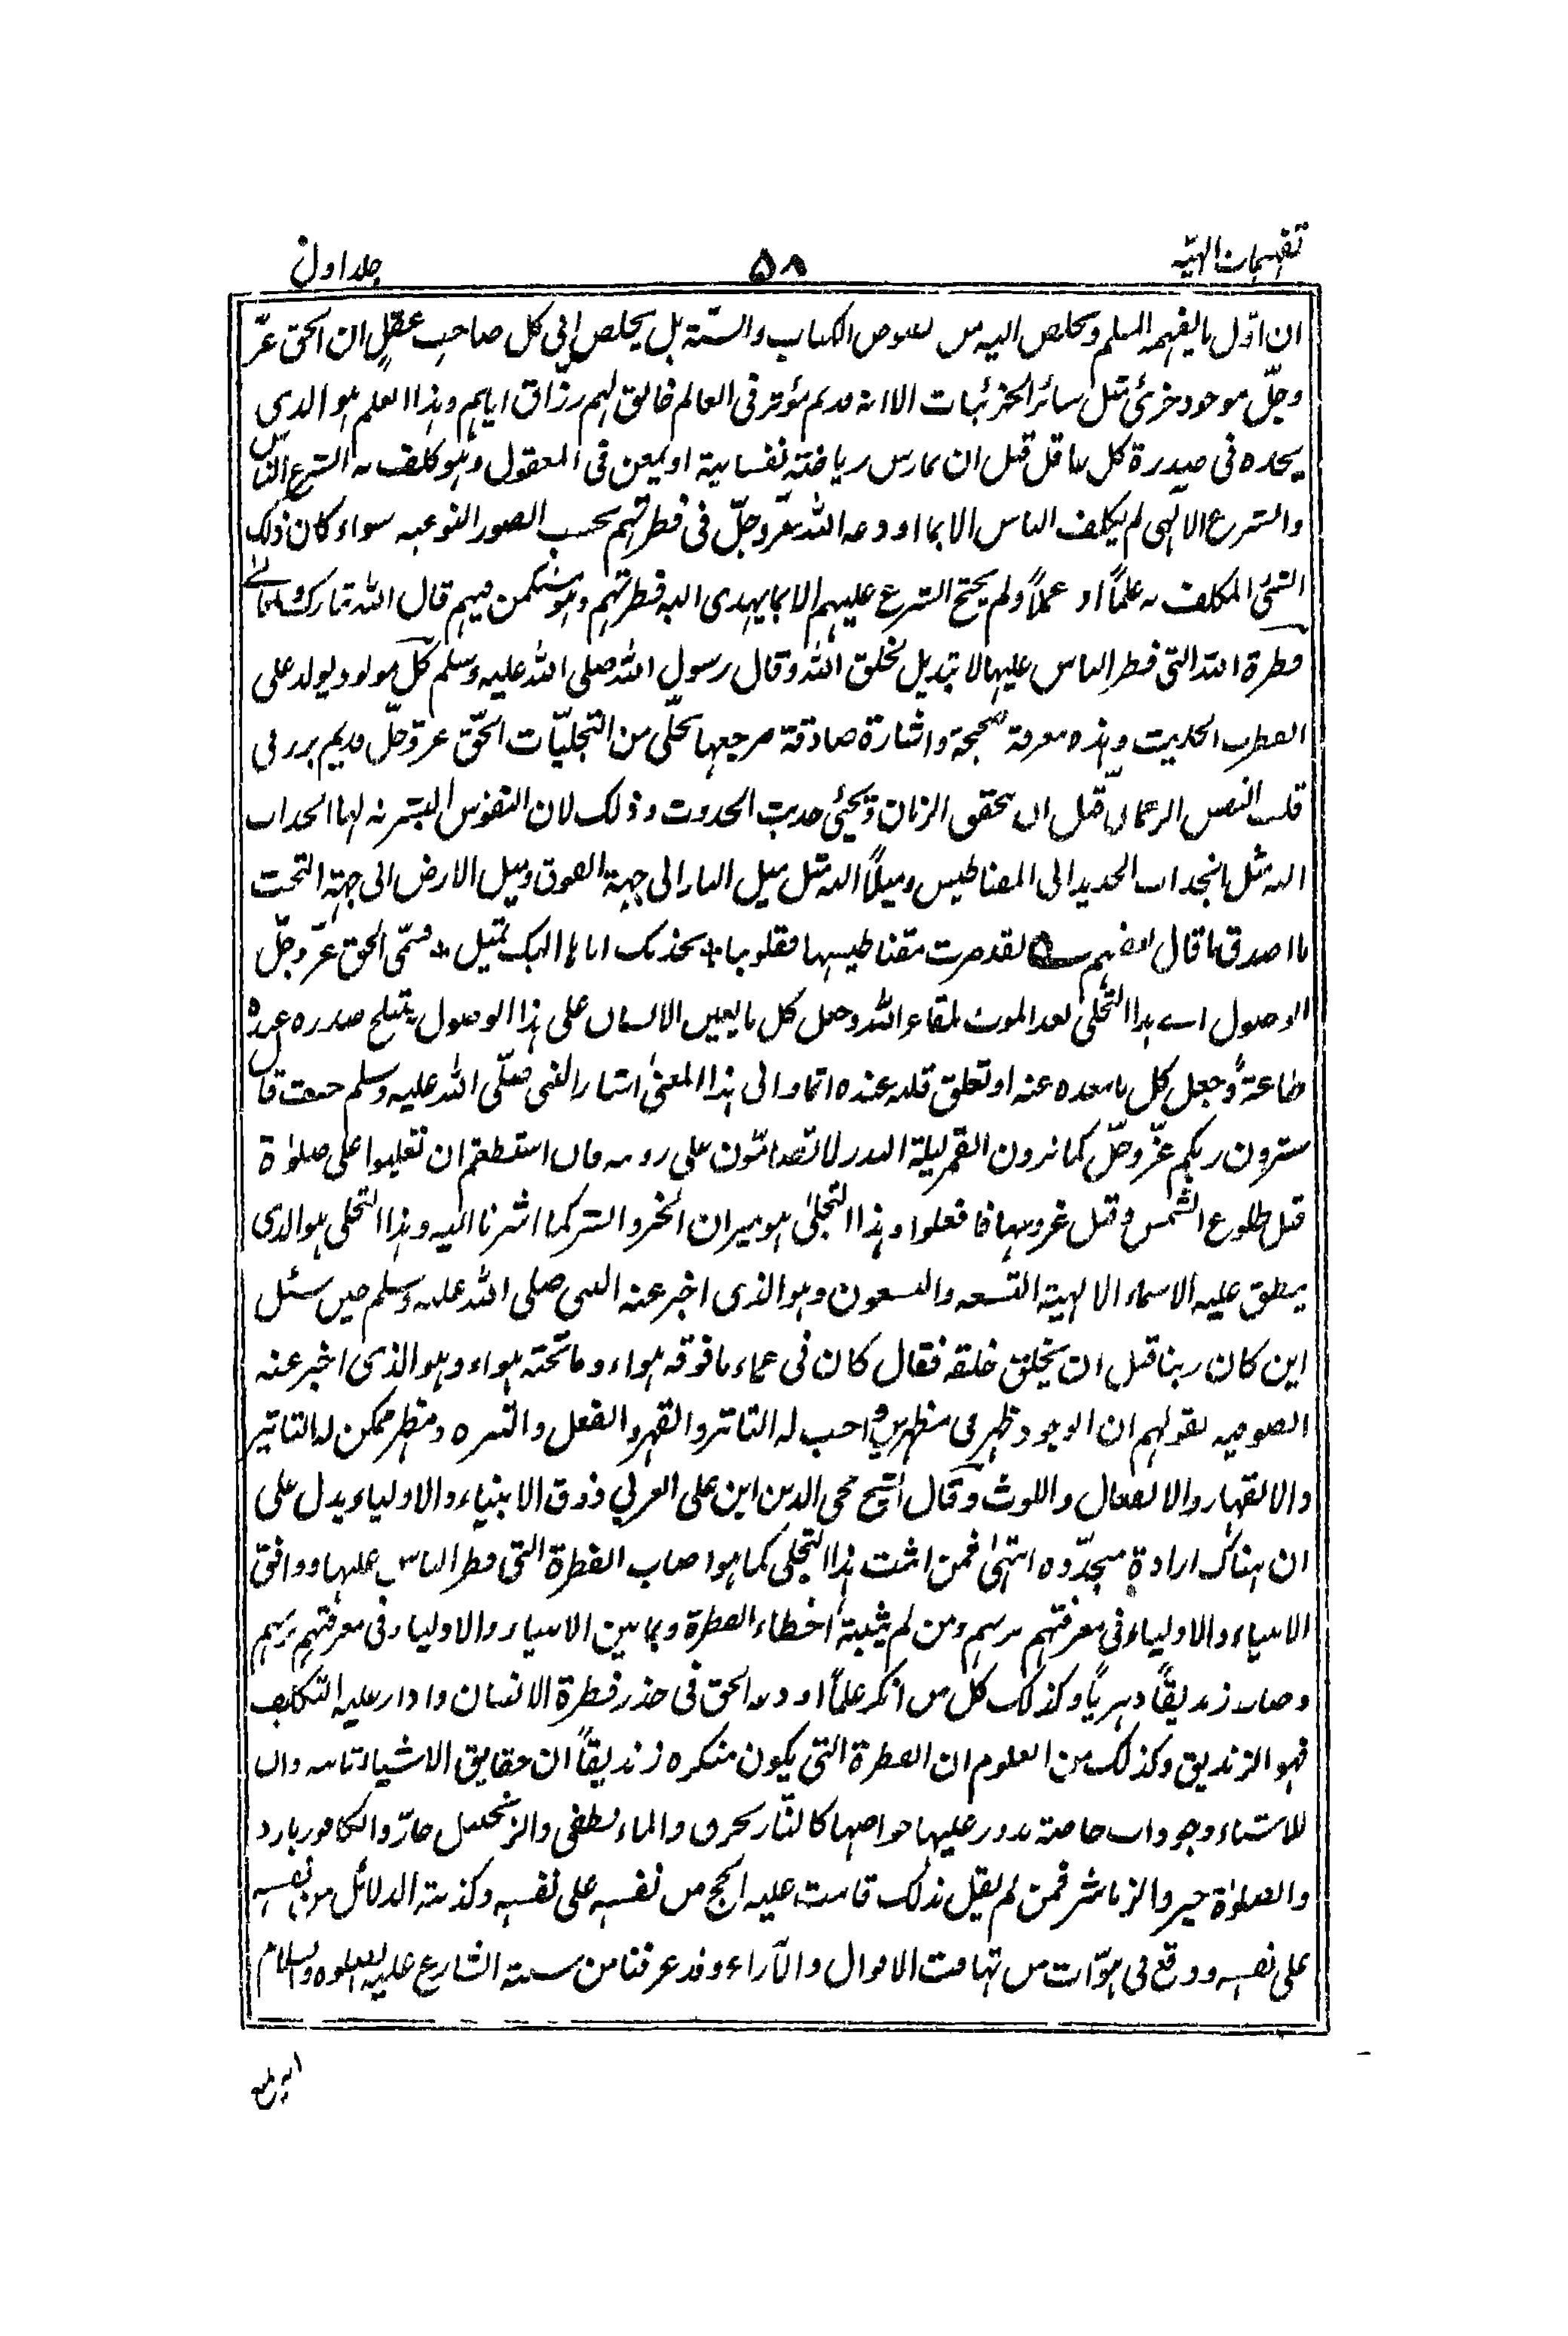 تفہیمات الہیّہ ۵۸ جلد اول
ان اوّل ما یفہمہ المسلم ویخلص الیہ من نصوص الکتاب والسنّۃ بل یخلص الی کل صاحب عقل ان الحق عزّ
وجلّ موجود جزئی مثل سائر الجزئیات الا انہ قدیم مؤثر فی العالم خالق لہم رزّاق ایاہم وہذا العلم ہو الذی
یجدہ فی صدرہ کل عاقل قبل ان یمارس ریاضۃ نفسانیۃ او یمعن فی المعقول وہو کلف بہ الشرع الناس
والشرع الالٰہی لم یکلف الناس الا بما اودعہ اللہ عزّ وجلّ فی فطرتہم بحسب الصور النوعیہ سواء کان ذلک
الشئ المکلف بہ علماً او عملاً ولم یحتج الشرع علیہم الا بما یہدی الیہ فطرتہم وہو متمکن فیہم قال اللہ تبارک وتعالٰے
فطرۃ اللہ التی فطر الناس علیہا لا تبدیل لخلق اللہ وقال رسول اللہ صلی اللہ علیہ وسلم کل مولود یولد علی
الفطرۃ الحدیث وہذہ معرفۃ صحیحۃ واشارۃ صادقۃ مرجعہا تجلّی من التجلیّات الحق عز وجلّ قدیم برز فی
قلب النفس الرحمانی قبل ان یتحقق الزمان ویجئی حدیث الحدوث وذلک لان النفوس البشریہ لہا انجذاب
الیہ مثل انجذاب الحدید الی المغناطیس ومیلاً الیہ مثل میل النار الی جہۃ الفوق ومیل الارض الی جہۃ التحت
ما اصدق ما قال بعضہم لقد صرت مقناطیسہا فقلوبنا * بجذبک ایاہا الیک تمیل * فسمّی الحق عزّ وجلّ
الوصول الے ہذا التجلی بعد الموت لقاء اللہ وجعل کل ما یعین الانسان علی ہذا الوصول صدرہ عبدہ
طاعۃً وجعل کل ما یبعدہ عنہ او تعلق قلبہ عندہ اثما والی ہذا المعنٰی اشار النبی صلّی اللہ علیہ وسلم حیث قال
سترون ربکم عزّ وجلّ کما ترون القمر لیلۃ البدر لا تضامّون علی رویتہ فان استطعتم ان تغلبوا علی صلوٰۃ
قبل طلوع الشمس وقبل غروبہا فافعلوا وہذا التجلی ہو میزان الخیر والشر کما اشرنا الیہ وہذا التجلی ہو الذی
یطلق علیہ الاسماء الالہیۃ التسعہ والتسعون وہو الذی اخبر عنہ النبی صلی اللہ علیہ وسلم حین سئل
این کان ربنا قبل ان یخلق خلقہ فقال کان فی عماء ما فوقہ ہواء وما تحتہ ہواء وہو الذی اخبر عنہ
الصوفیہ بقولہم ان الوجود ظہر فی مظہرین واجب لہ التاثر والقہر والفعل و ومظہر ممکن لہ التاثیر
والانقہار والانفعال واللوث وقال الشیخ محی الدین ابن علی العربی ذوق الانبیاء والاولیاء یدل علی
ان ہناک ارادۃ متجدّدہ انتہٰی فمن اثبت ہذا التجلی کما ہو اصاب الفطرۃ التی فطر الناس علیہا ووافق
الانبیاء والاولیاء فی معرفتہم بربہم ومن لم یثبتہ اخطاء الفطرۃ وباین الانبیاء والاولیاء فی معرفتہم بربہم
وصار زندیقاً دہریاً وکذلک کل من انکر علماً اودعہ الحق فی جذر فطرۃ الانسان وادار علیہ التکلیف
فہو الزندیق وکذلک من العلوم ان الفطرۃ التی یکون منکرہ زندیقاً ان حقایق الاشیاء ثابتہ وان
للاشیاء وجودات خاصۃ یدور علیہا خواصہا کالنّار یحرق والماء یطفی والزنجبیل حارّ والکافور بارد
والصلوٰۃ خیر والزنا شر فمن لم یقل بذلک قامت علیہ الحجج من نفسہ علی نفسہ وکذبتہ الدلائل من نفسہ
علی نفسہ ووقع فی ہوّات من تہافت الاقوال والآراء وقد عرفنا من سنۃ الشارع علیہ الصلوٰہ والسلام